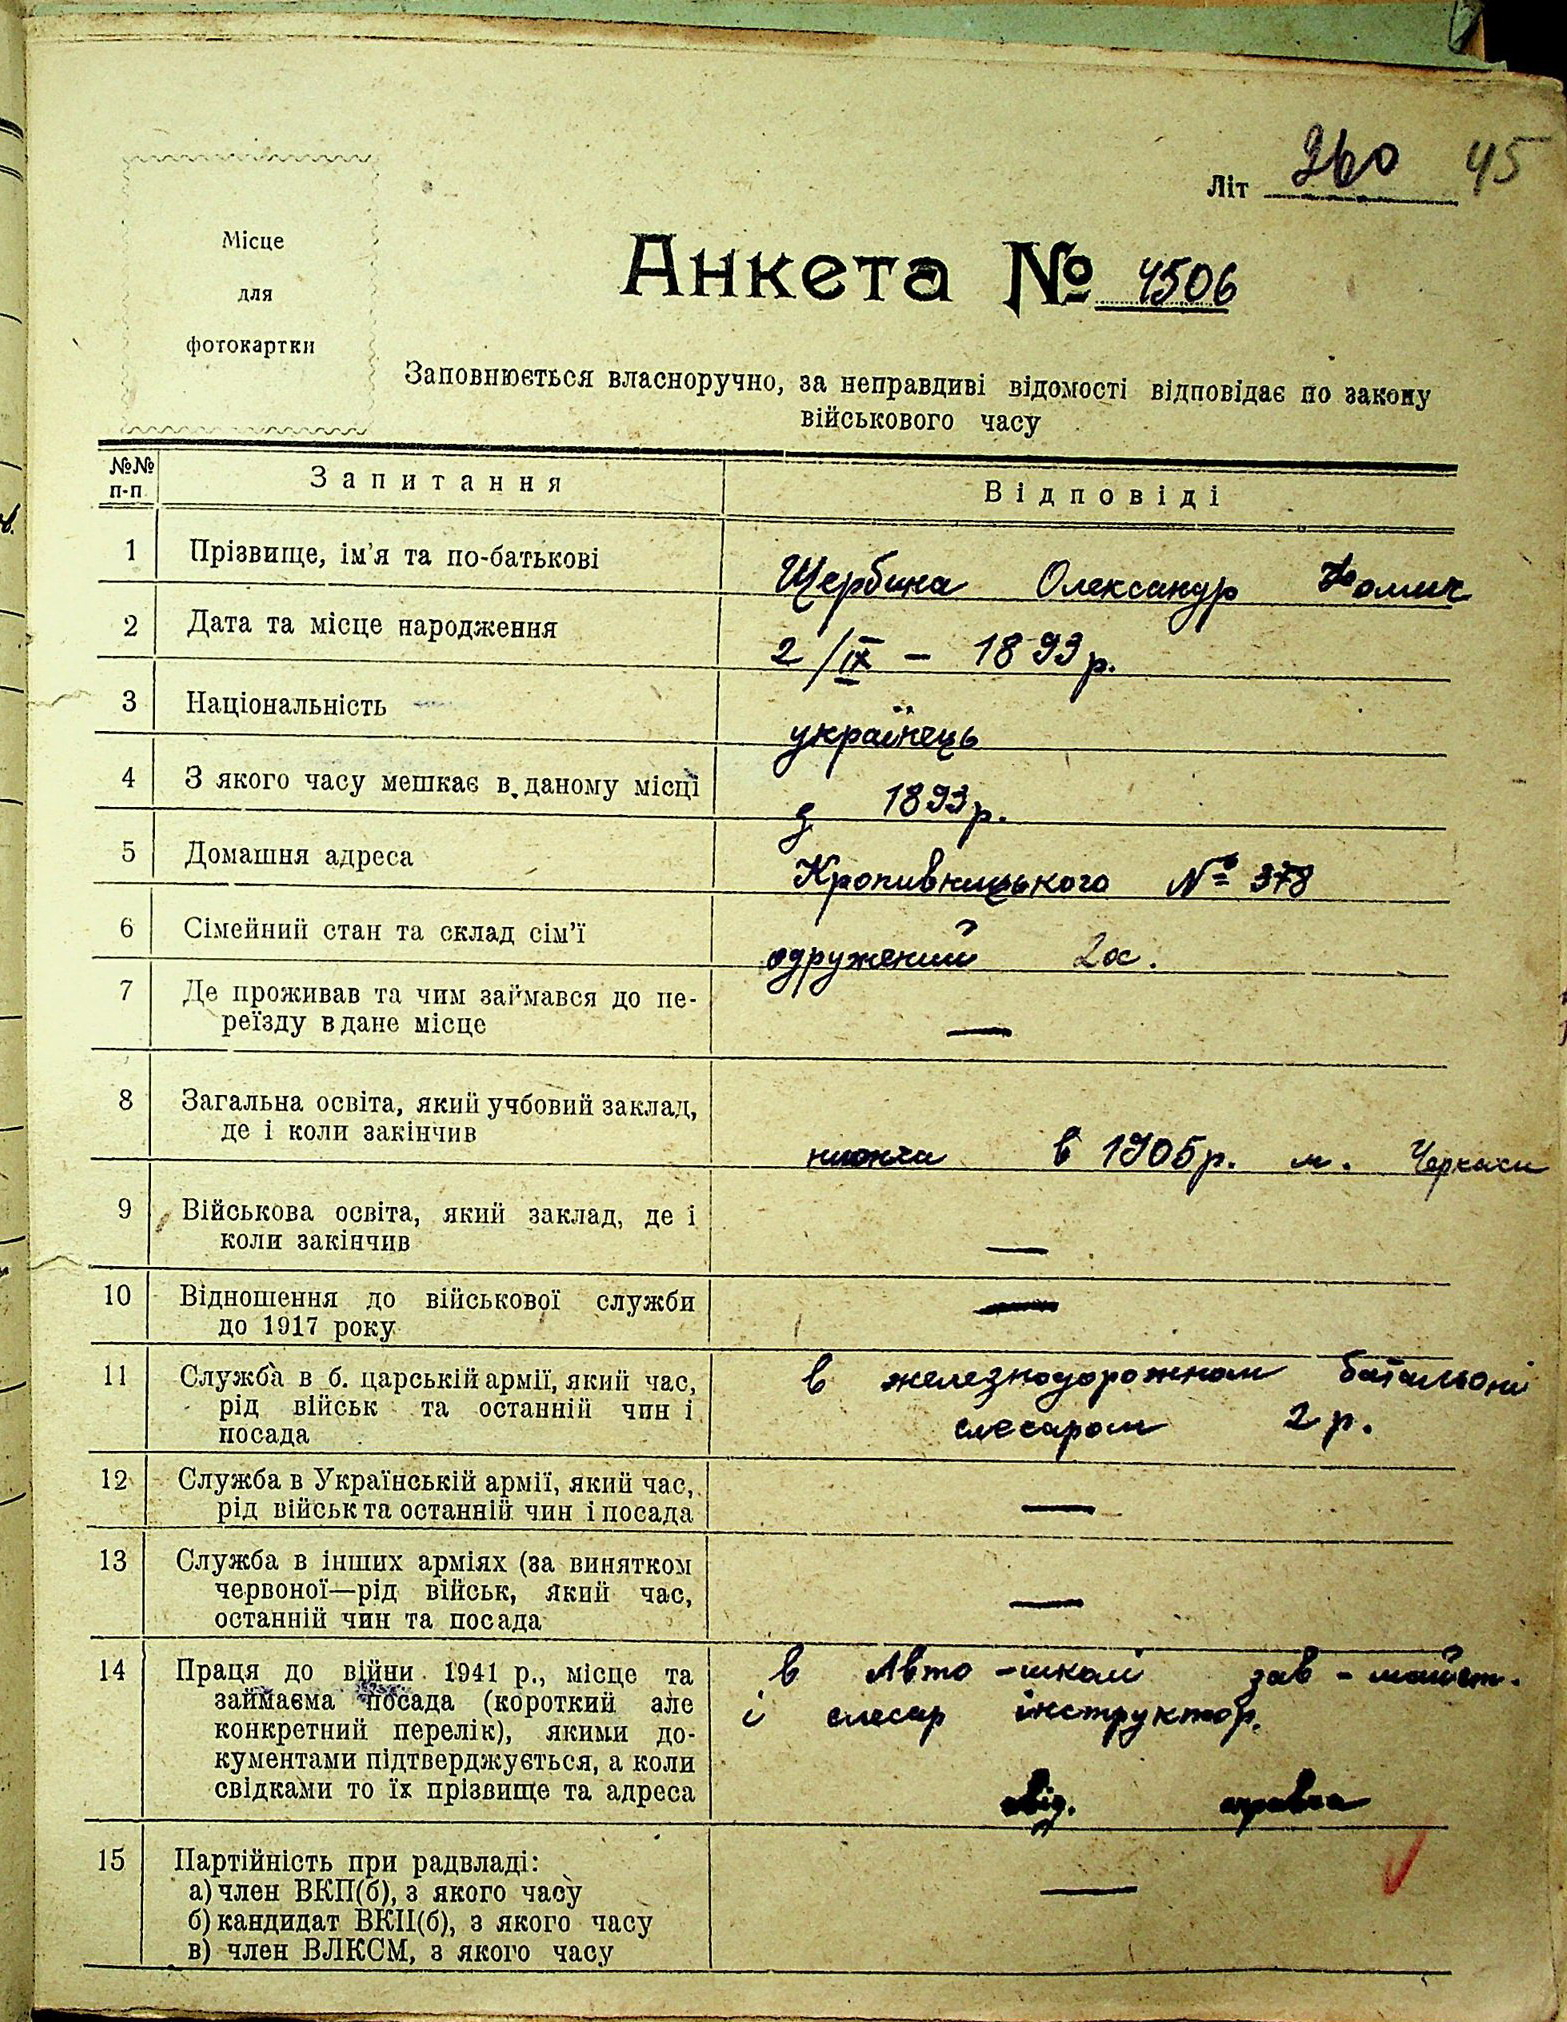 Літ 360 45
Місце
для
фотокартки
Анкета № 4506
Заповнюється власноручно, за неправдиві відомості відповідає по закону
військового часу
№№ п-п Запитання Відповіді
1 Прізвище, ім'я та по-батькові Щербина Олександр Хомич
2 Дата та місце народження 2/IX – 1893 р.
3 Національність українець
4 З якого часу мешкає в даному місці з 1893 р.
5 Домашня адреса Кропивницького № 378
6 Сімейний стан та склад сім'ї одружений 2 ос.
7 Де проживав та чим займався до пе-
реїзду в дане місце —
8 Загальна освіта, який учбовий заклад,
де і коли закінчив нижча в 1905 р. м. Черкаси
9 Військова освіта, який заклад, де і
коли закінчив —
10 Відношення до військової служби —
до 1917 року
11 Служба в б. царській армії, який час, в железнодорожном батальоні
рід військ та останній чин і слесаром 2 р.
посада
12 Служба в Українській армії, який час,
рід військ та останній чин і посада —
13 Служба в інших арміях (за винятком
червоної—рід військ, який час,
останній чин та посада —
14 Праця до війни 1941 р., місце та в Авто-школі зав-майст.
займаєма посада (короткий але і слесар інструктор.
конкретний перелік), якими до-
кументами підтверджується, а коли
свідками то їх прізвище та адреса
15 Партійність при радвладі:
а) член ВКП(б), з якого часу —
б) кандидат ВКП(б), з якого часу
в) член ВЛКСМ, з якого часу